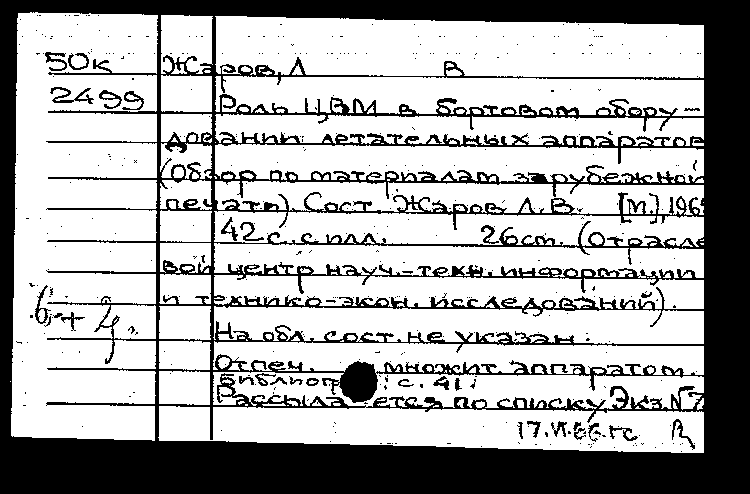 50к Жаров, Л В
2499 Роль ЦВМ в бортовом обору-
довании летательных аппаратов
(Обзор по материалам зарубежной
печати). Сост. Жаров Л.В. [М.], 196
42 с. с илл. 26 см. (Отрасле
вой центр науч.-техн. информации
и технико-экон. исследований).
На обл. сост. не указан.
Отпеч. множит. аппаратом.
Библиогр : с. 41.
Рассыла ется по списку. Экз. №7
17.VI.66. гс